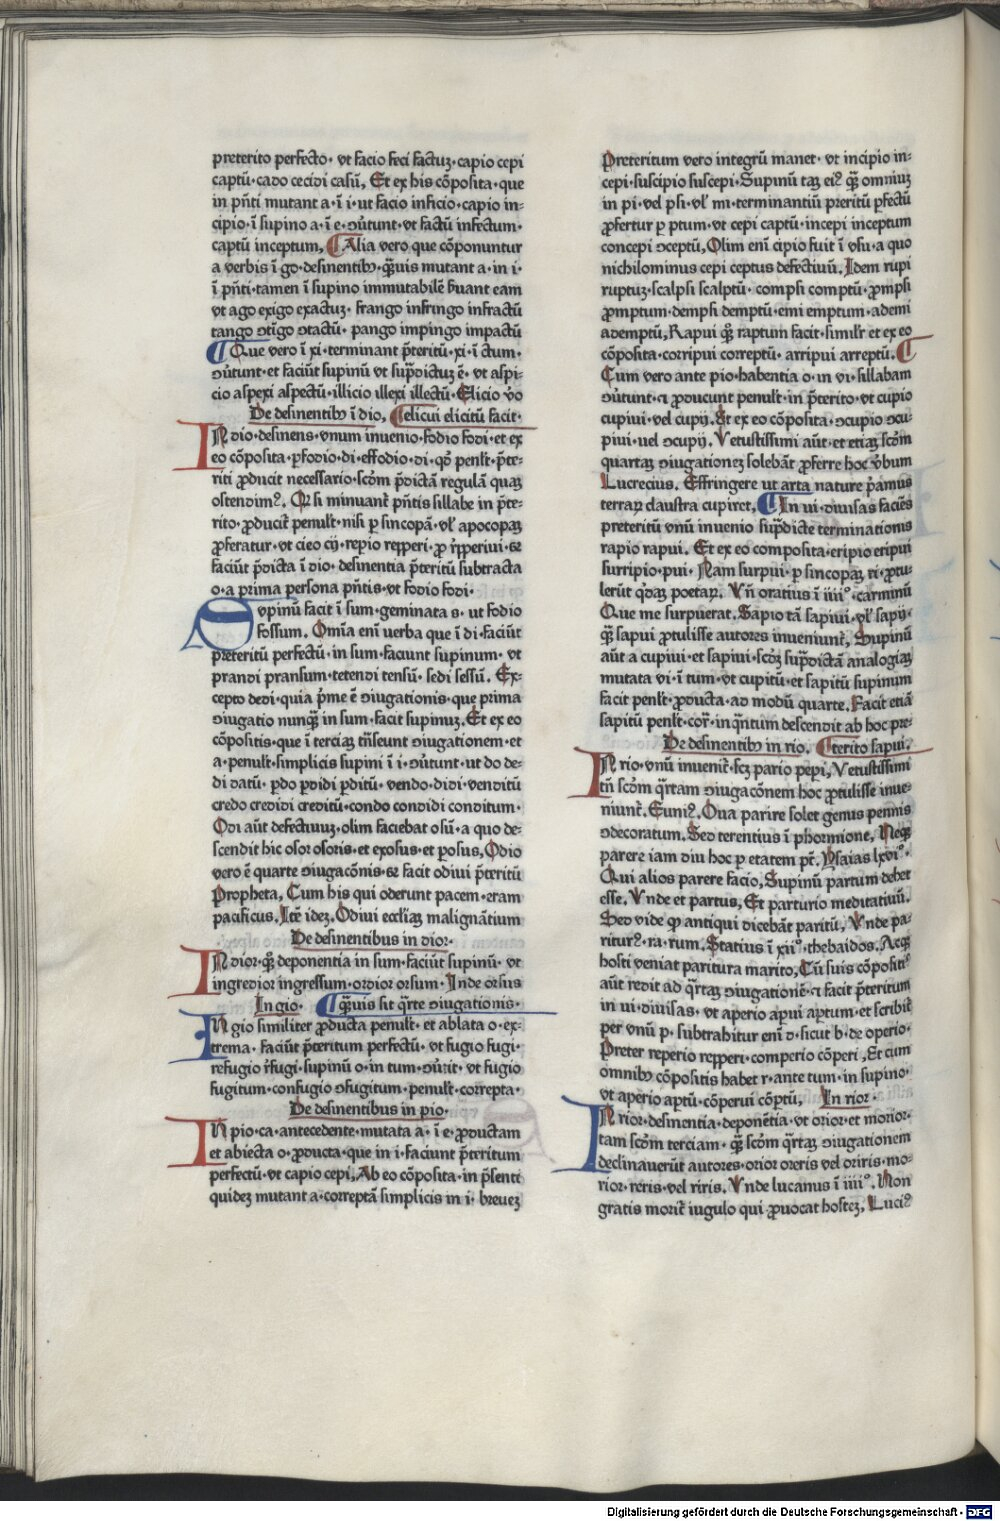 preterito perfecto· vt facio feci factuʒ·capio cepi
captū·cado cecidi casū, Et ex his cōposita·que
in pn̄ti mutant a·ī i·ut facio inficio·capio in-
cipio·ī supino a·ī e·ɔūtunt·vt factū infectum·
captū inceptum, ¶Alia vero que cōponuntur
a verbis ī go·desinentibꝫ·qͣuis mutant a·in i·
ī pn̄ti·tamen ī supino immutabilē ẜuant eam
vt ago exigo exactuʒ· frango infringo infractū
tango ɔtīgo ɔtactū· pango impingo impactū
¶Que vero ī xi·terminant p̄teritū·xi·ī ctum·
ɔūtunt·et faciūt supinū vt sup̄dictuʒ ē· vt aspi-
cio aspexi aspectū·illicio illexi illectū·Elicio v̊o
De desinentibꝫ ī dio, ¶elicui elicitū facit·
IN dio·desinens·vnum īuenio·fodio fodi·et ex
eo cōposita·ꝑfodio·di·effodio·di·qđ penłt·p̄te-
riti ꝓducit necessario·scđm p̄dictā regulā quaꝫ
ostendimꝰ. Qꝛ si minuant̄ pn̄tis sillabe in p̄te-
rito·ꝓducit̄ penłt·nisi ꝑ sincopā·vł apocopaꝫ
ꝓferatur·vt cieo cij·repio reꝑperi·ꝓ r̄ꝑperiui·⁊
faciūt p̄dicta ī dio· desinentia p̄teritū subtracta
o·a prima persona pn̄tis·vt fodio fodi·
Supinū facit ī sum·geminata s·ut fodio
fossum. Omīa enī verba que ī di·faciūt
preteritū perfectū·in sum·faciunt supinum· vt
prandi pransum·tetendi tensū· sedi sessū. Ex-
cepto dedi·quia p̄me ē ɔiugationis·que prima
ɔiugatio nunqͣ in sum·facit supinuʒ·Et ex eo
cōpositis·que ī terciaꝫ tn̄seunt ɔiugationem·et
a·penult·simplicis supini ī i·ɔūtunt·ut do de-
di datū· ꝑdo ꝑdidi ꝑditū· vendo·didi·venditū
credo credidi creditū·condo condidi conditum·
Odi aūt defectiuuʒ·olim faciebat osū·a quo de-
scendit hic osor osoris·et exosus·et ꝑosus, Odio
vero ē quarte ɔiugacōnis·⁊ facit odiui p̄teritū
Propheta, Cum his qui oderunt pacem·eram
pacificus. Itē ideʒ. Odiui eccl̄iaꝫ malignātium
De desinentibus in dior·
IN dior·qͣ deponentia in sum·faciūt supinū· vt
ingredior ingressum·ordior orsum·Inde orsus
In gio· ¶qͣuis sit qͣrte ɔiugationis·
IN gio similiter ꝓducta penult· et ablata o·ex-
trema· faciūt p̄teritum perfectū· vt fugio fugi·
refugio r̄fugi·supinū o·in tum·ɔūtit· vt fugio
fugitum·confugio ɔfugitum·penult·correpta·
De desinentibus in pio·
IN pio·ca·antecedente·mutata a· ī e·ꝓductam
et abiecta o·ꝓducta·que in i·faciunt p̄teritum
perfectū·vt capio cepi, Ab eo cōposita·in p̄senti
quideʒ mutant a·correptā simplicis in i· breueʒ
Preteritum vero integrū manet· vt incipio in-
cepi·suscipio suscepi·Supinū taꝫ eiꝰ qͣ omniuʒ
in pi·vel psi·vł mi·terminantiū preritū ꝑfectū
ꝓfertur ꝑ ptum·vt cepi captū·incepi inceptum
concepi ɔceptū, Olim enī cipio fuit ī vsu·a quo
nichilominus cepi ceptus defectiuū. Idem rupi
ruptuʒ·scalpsi scalptū· compsi comptū· ꝓmpsi
ꝓmptum·dempsi demptū·emi emptum·ademi
ademptū, Rapui qͣ raptum facit·similr̄ et ex eo
cōposita·corripui correptū· arripui arreptū. ¶
Cum vero ante pio·habentia o·in vi·sillabam
ɔūtunt·⁊ ꝓducunt penult·in p̄terito·vt cupio
cupiui·vel cupij. Et ex eo cōposita·ɔcupio ɔcu-
piui·uel ɔcupij. Vetustissimi aūt·et etiaꝫ scđm
quartaꝫ ɔiugationeʒ solebāt ꝓferre hoc v̊bum
Lucrecius. Effringere ut arta nature p̄amus
terraꝝ claustra cupiret. ¶In vi·diuisas faciēs
preteritū vnū inuenio sup̄dicte terminationis
rapio rapui. Et ex eo composita·eripio eripui
surripio·pui· Nam surpui·ꝑ sincopaꝫ ri·ꝓtu-
lerūt qͥdaꝫ poetaꝝ. Vn̄ oratius ī iiiiº·carminū
Que me surpuerat. Sapio tā sapiui·vł sapij·
qͣ sapui ꝓtulisse autores inueniunt̄, Supinū
aūt a cupiui·et sapiui·scđʒ sup̄dictā analogiaꝫ
mutata vi·ī tum·vt cupitū·et sapitū supinum
facit penłt·ꝓducta·ad modū quarte. Facit etiā
sapitū penłt·cor̄r·in qͣntum descendit ab hoc pre-
De desinentibꝫ in rio. ¶terito sapui.
IN rio·vnū inuenit̄·scʒ pario peperi, Vetustissimi
tn̄ scđm qͣrtam ɔiugacōnem hoc ꝓtulisse inue-
niunt̄. Euniꝰ. Oua parire solet genus pennis
ɔdecoratum. Sed terentius ī phormione, Neqꝫ
parere iam diu hoc ꝑ etatem pt̄. Ysaias lxviº·
Qui alios parere facio, Supinū partum debet
esse. Vnde et partus, Et parturio meditatiuū.
Sed vide qꝙ antiqui dicebāt paritū, Vnde pa-
riturꝰ·ra·rum. Statius ī xiiº·thebaidos. Acqꝫ
hosti veniat paritura marito, Cū suis cōpositꝭ
aūt redit ad qͣrtaꝫ ɔiugationē·⁊ facit p̄teritum
in vi·diuisas· vt aperio aꝑui aꝑtum·et scribit̄
per vnū p· subtrahitur enī d·sicut b·de operio·
Preter reperio reꝑperi·comperio cōperi, Et cum
omnibꝫ cōpositis habet r·ante tum·in supino·
vt aperio aꝑtū·cōperui cōꝑtū, In rior·
IN rior·desinentia·deponētia·vt orior·et morior·
tam scđm terciam· qͣ scđm qͣrtaꝫ ɔiugationem
declinauerūt autores·orior oreris vel oriris·mo-
rior·reris·vel riris. Vnde lucanus ī iiiiº. Non
gratis morit̄ iugulo qui ꝓuocat hosteʒ, Luciꝰ
Digitalisierung gefördert durch die Deutsche Forschungsgemeinschaft - DFG